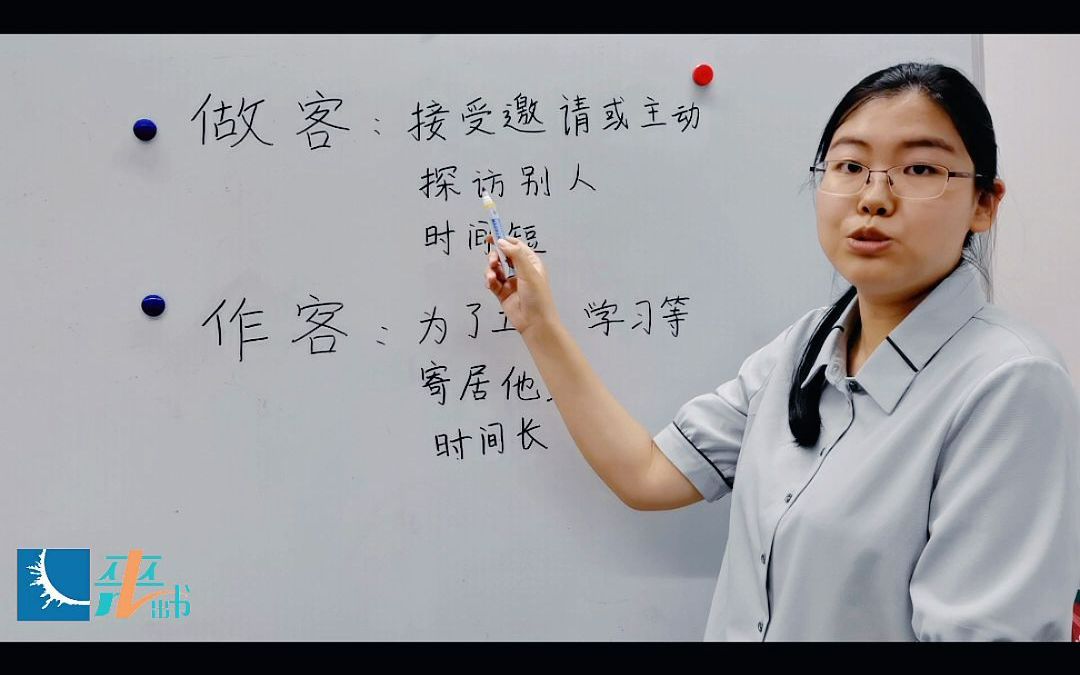 做客：接受邀请或主动
探访别人
时间短
作客：为了工 学习等
寄居他
时间长
出书